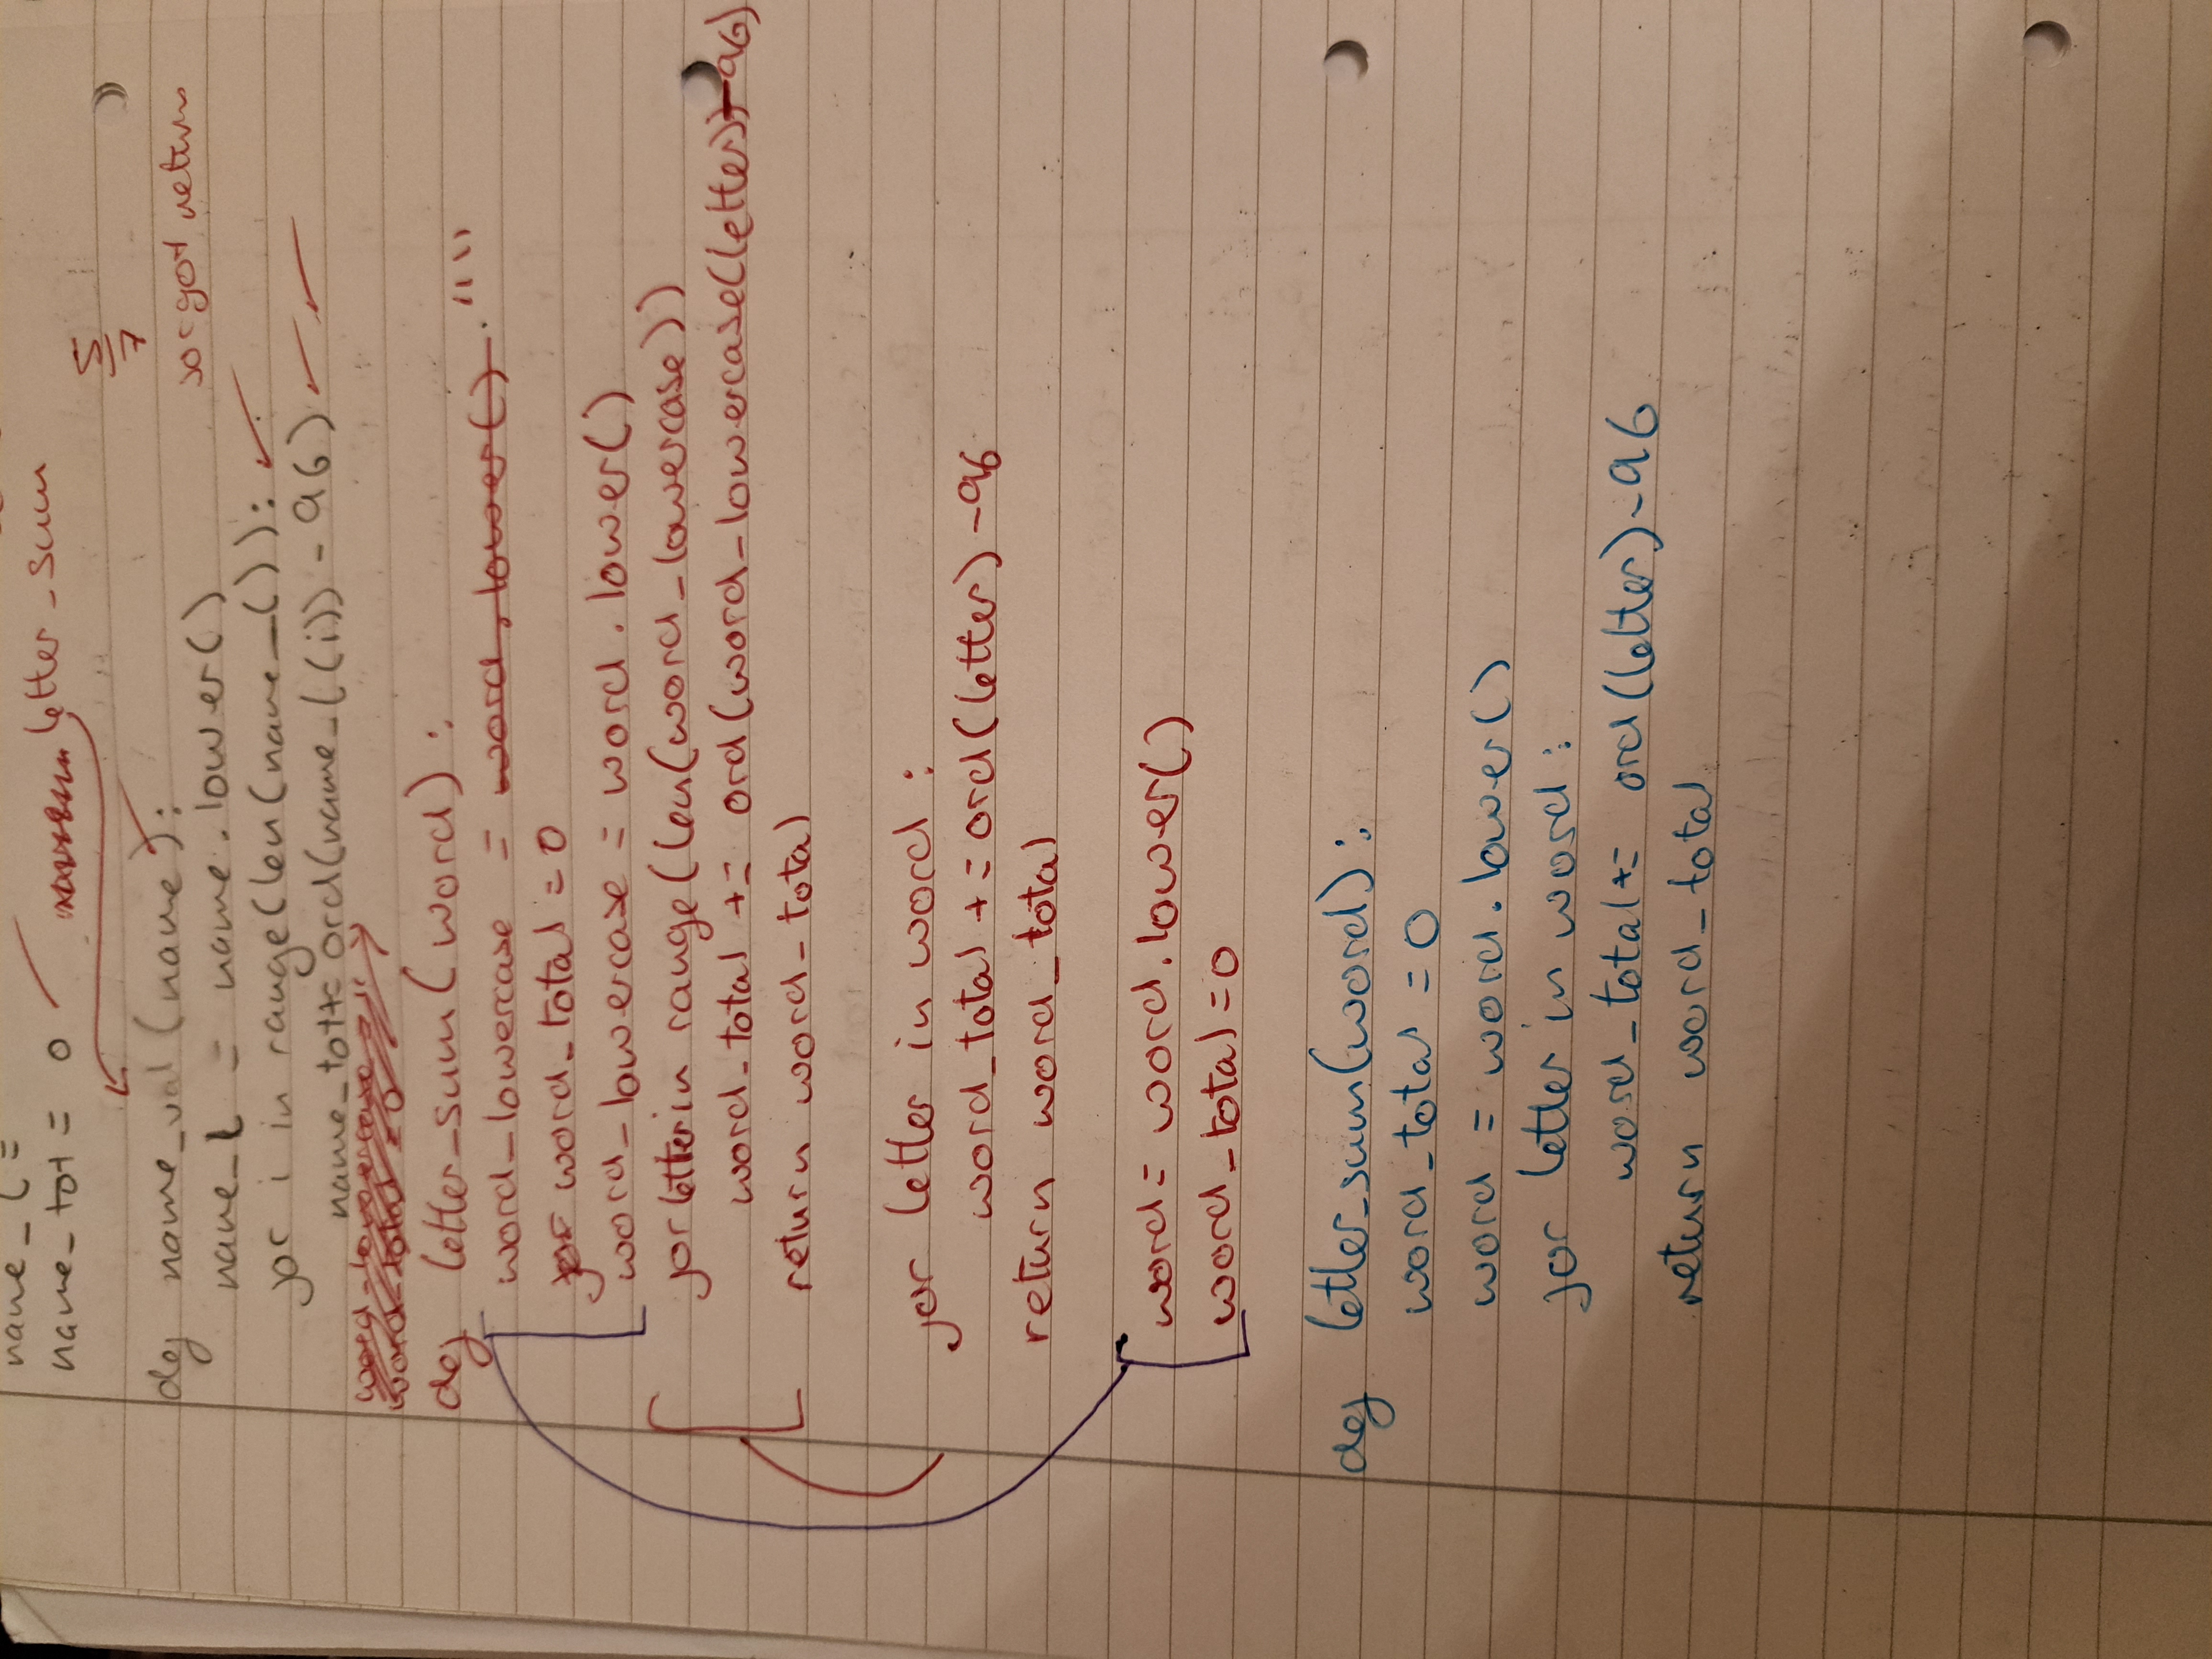 name_l =
name_tot = 0
letter_sum
5/7
def name_val (name):
forgot return
name_l = name.lower()
for i in range(len(name_l)):
name_tot += ord(name_l(i)) - 96)
word_lowercase = ""
word_total = 0
def letter_sum(word):
word_lowercase = word.lower() . ""
for word_total = 0
word_lowercase = word.lower()
for letter in range(len(word_lowercase))
word_total += ord(word_lowercase(letter))-96)
return word_total
for letter in word :
word_total += ord(letter) -96
return word_total
word = word.lower()
word_total = 0
def letter_sum(word):
word_total = 0
word = word.lower()
for letter in word :
word_total += ord(letter)-96
return word_total